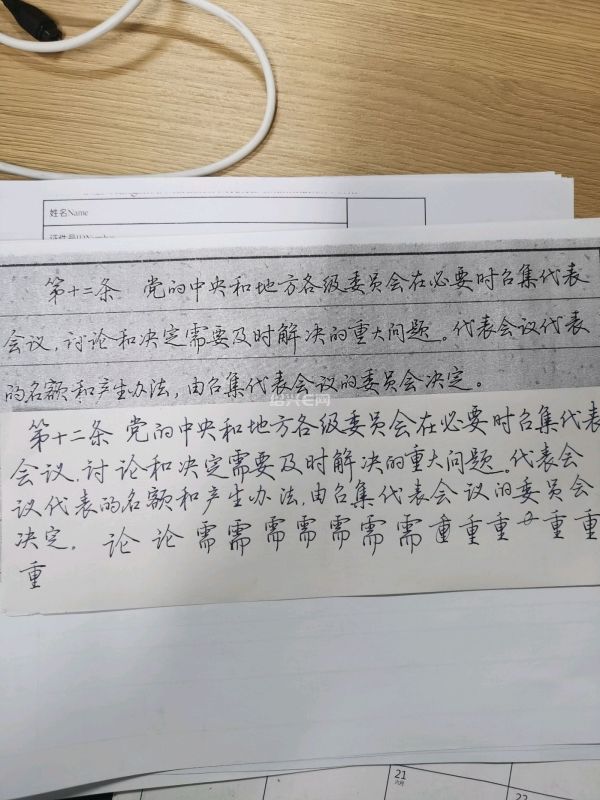 姓名Name
第十二条 党的中央和地方各级委员会在必要时召集代表
会议,讨论和决定需要及时解决的重大问题。代表会议代表
的名额和产生办法,由召集代表会议的委员会决定。
绍兴E网
第十二条 党的中央和地方各级委员会在必要时召集代表
会议,讨论和决定需要及时解决的重大问题。代表会
议代表的名额和产生办法,由召集代表会议的委员会
决定。 论 论 需 需 需 需 需 需 需 重 重 重 重 重
重
21
22